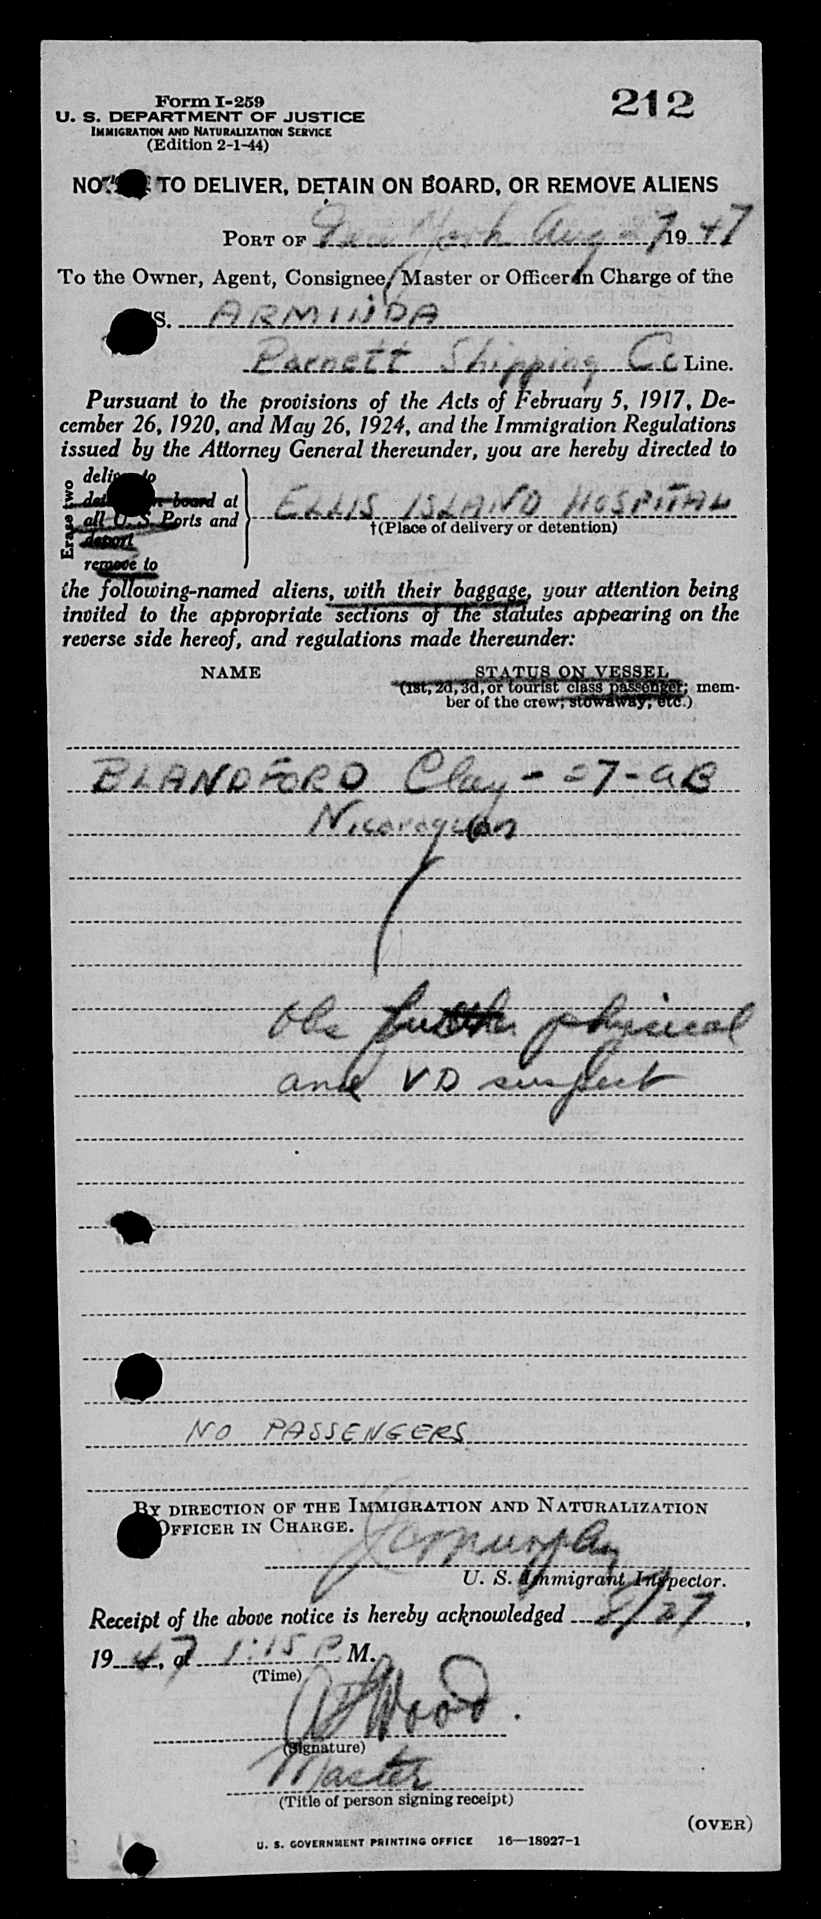 Form I-259
212
U. S. DEPARTMENT OF JUSTICE
IMMIGRATION AND NATURALIZATION SERVICE
(Edition 2-1-44)
TO DELIVER, DETAIN ON BOARD, OR REMOVE ALIENS
PORT OF New York Aug 27 1947
To the Owner, Agent, Consignee, Master or Officer in Charge of the
SS. ARMINDA
Barnett Shipping Co Line.
Pursuant to the provisions of the Acts of February 5, 1917, De-
cember 26, 1920, and May 26, 1924, and the Immigration Regulations
issued by the Attorney General thereunder, you are hereby directed to
Erase two
deliver to
detain on board at
all U. S. Ports and
deport
remove to
ELLIS ISLAND HOSPITAL
†(Place of delivery or detention)
the following-named aliens, with their baggage, your attention being
invited to the appropriate sections of the statutes appearing on the
reverse side hereof, and regulations made thereunder:
NAME STATUS ON VESSEL
(1st, 2d, 3d, or tourist class passenger; mem-
ber of the crew; stowaway; etc.)
BLANDFORD Clay - 27 - AB
Nicaraguan
further physical
and VD suspect
NO PASSENGERS
BY DIRECTION OF THE IMMIGRATION AND NATURALIZATION
OFFICER IN CHARGE.
Murphy
U. S. Immigrant Inspector.
Receipt of the above notice is hereby acknowledged 8/27,
1947, at 1:15 P M.
(Time)
Wood.
(Signature)
Master
(Title of person signing receipt)
(OVER)
U. S. GOVERNMENT PRINTING OFFICE 16—18927-1